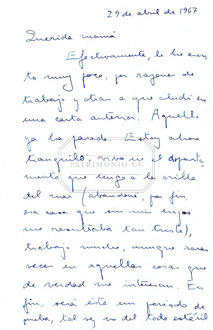 29 de abril de 1967
Querida mamá:
Efectivamente, le he escri
to muy poco, por razones de
trabajo y otras a que aludí en
una carta anterior. Aquello
ya ha pasado. Estoy ahora
tranquilo, vivo en el departa
mento que tengo a la orilla
del mar (abandoné, por fin,
esa casa que sin mis hijos
me resultaba tan triste),
PATRIMONIO UC
trabajo mucho, aunque raras
veces en aquellas cosas que
de verdad me interesan. En
fin, será éste un período de
prueba, tal vez no del todo estéril